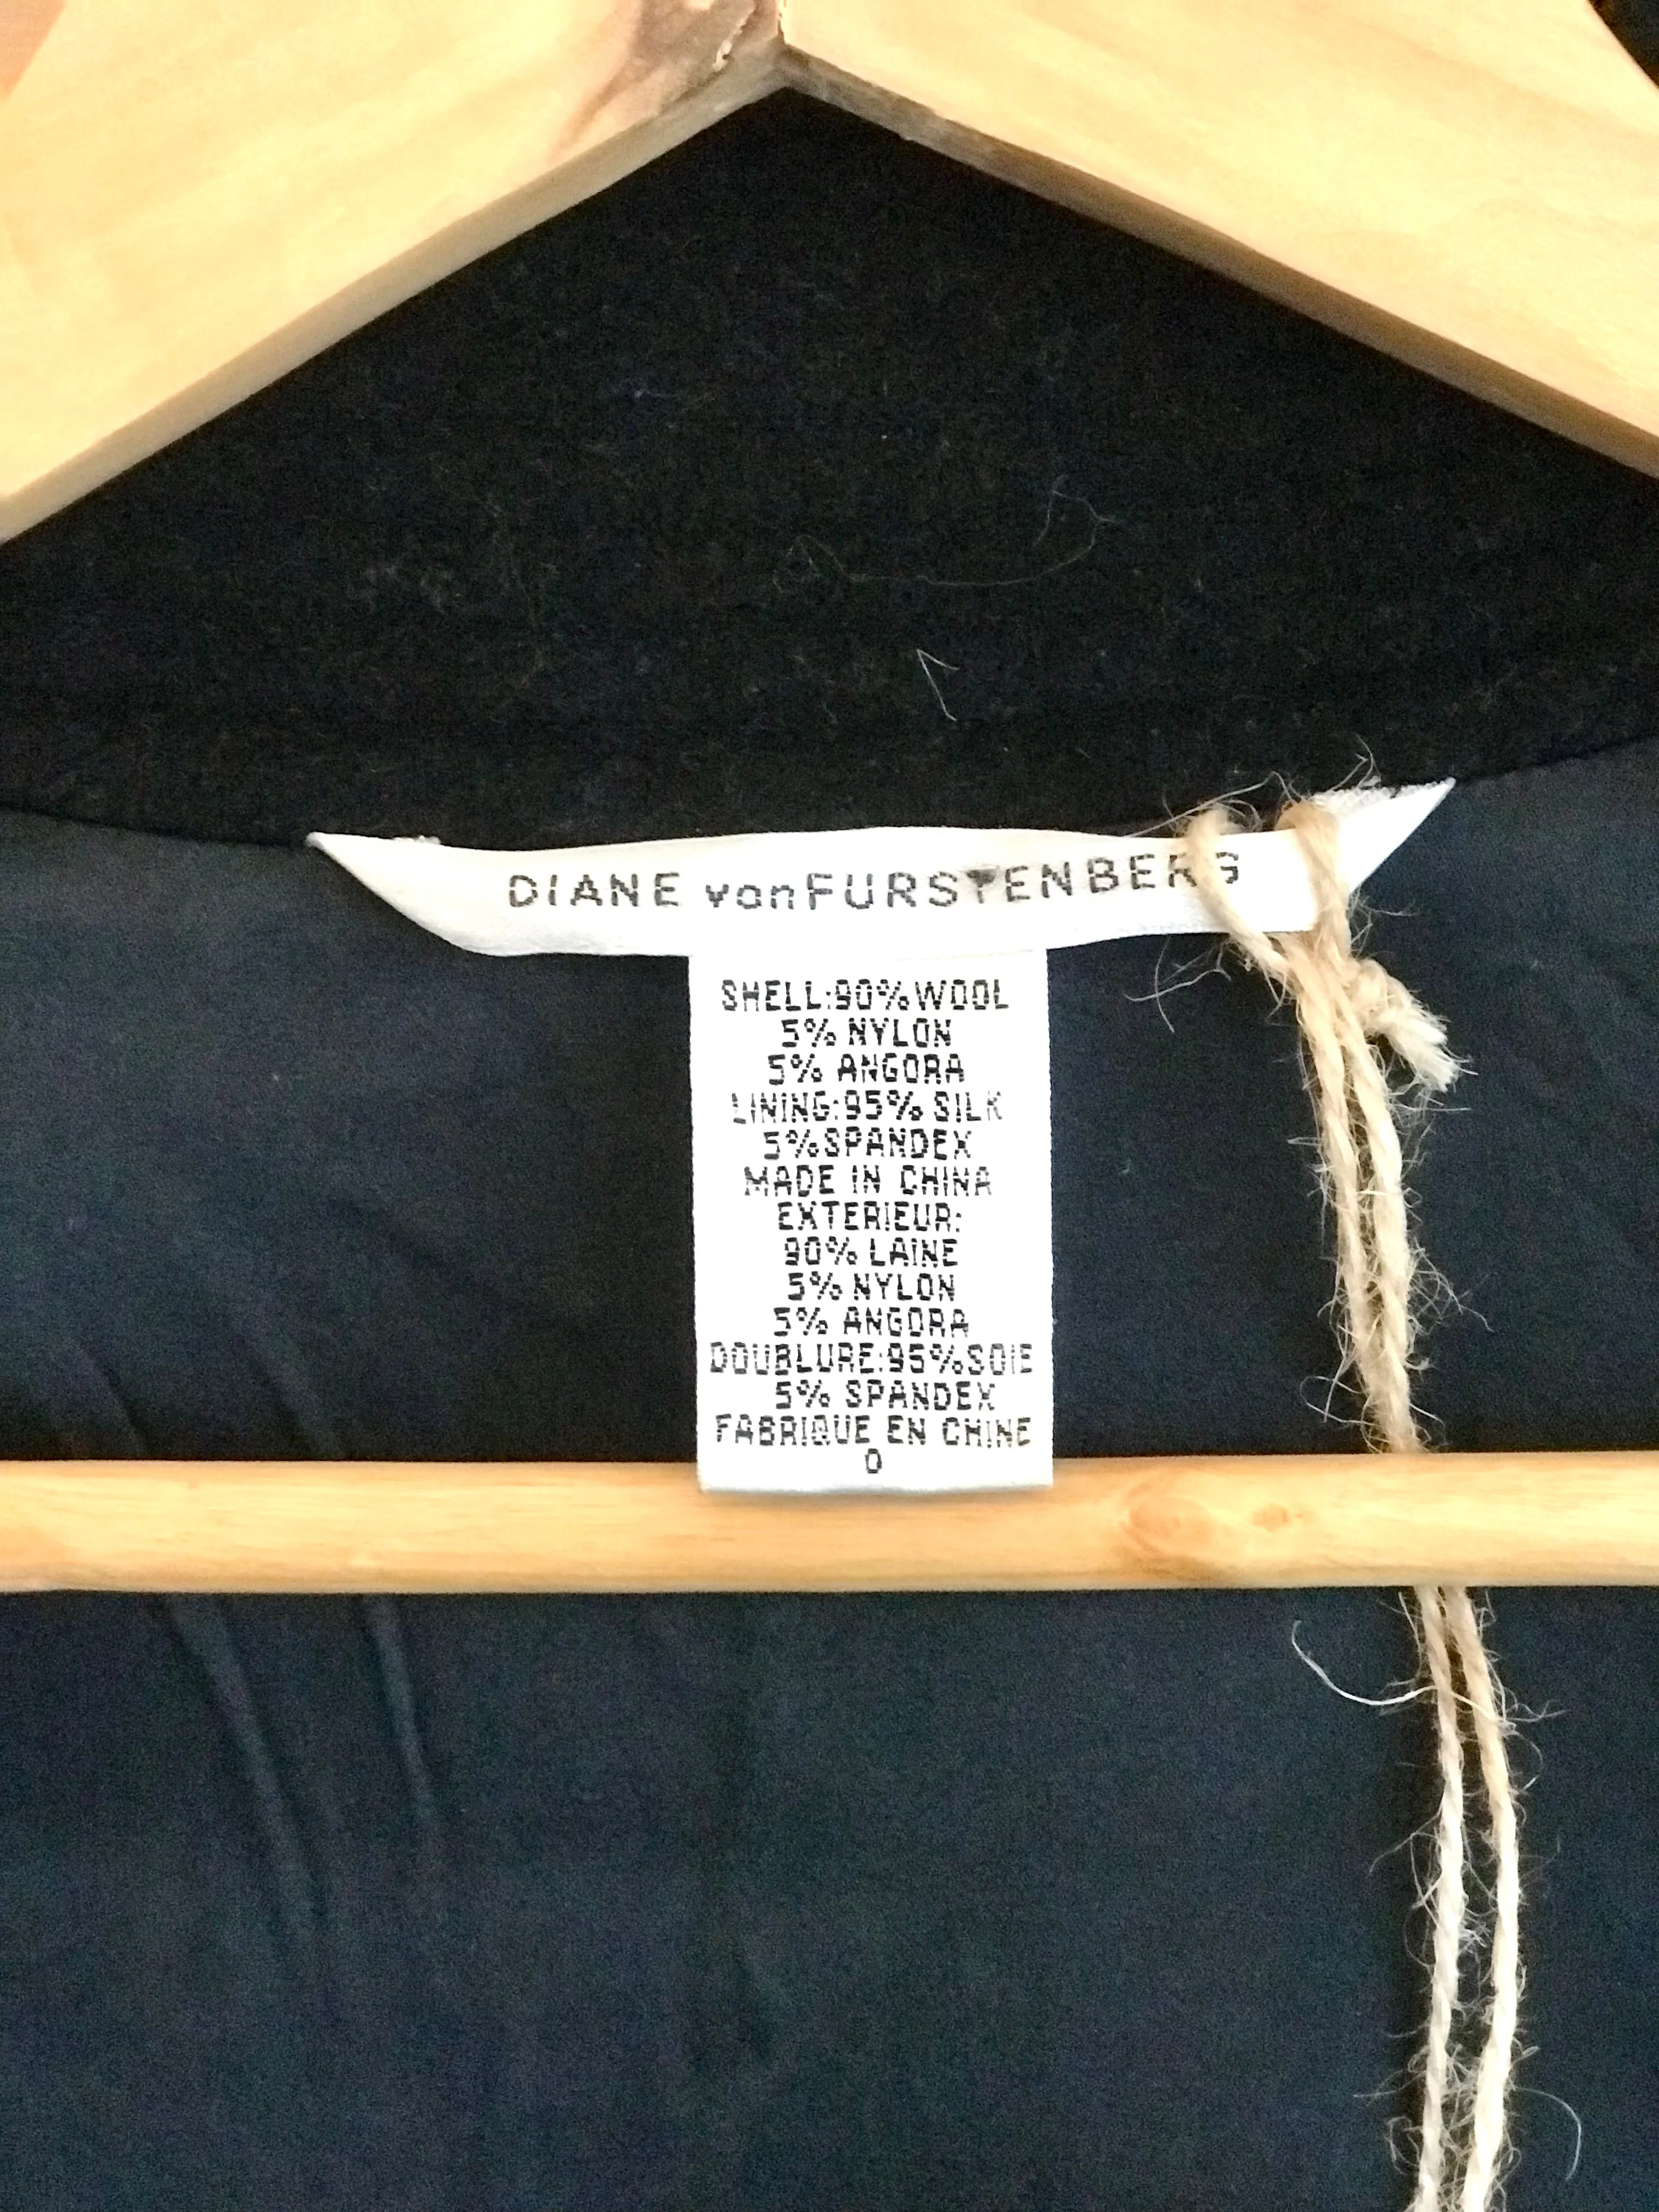 DIANE vonFURSTENBERG
SHELL:90%WOOL
5% NYLON
5% ANGORA
LINING:95% SILK
5%SPANDEX
MADE IN CHINA
EXTERIEUR:
90% LAINE
5% NYLON
5% ANGORA
DOUBLURE:95%SOIE
5% SPANDEX
FABRIQUE EN CHINE
0